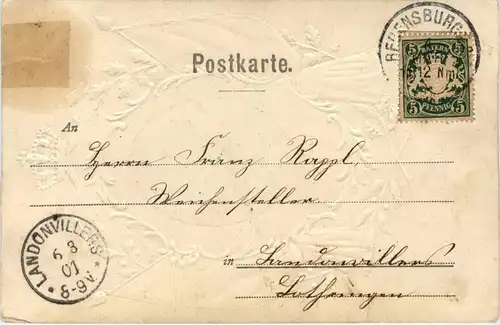 REGENSBURG
5 BAYERN 5
12 Nm
5 PFENNIG 5
Postkarte.
An
Herrn Franz Rappl,
Weichensteller
in Landonvillers
Lothringen
LANDONVILLERS
6 3
01
8-9V